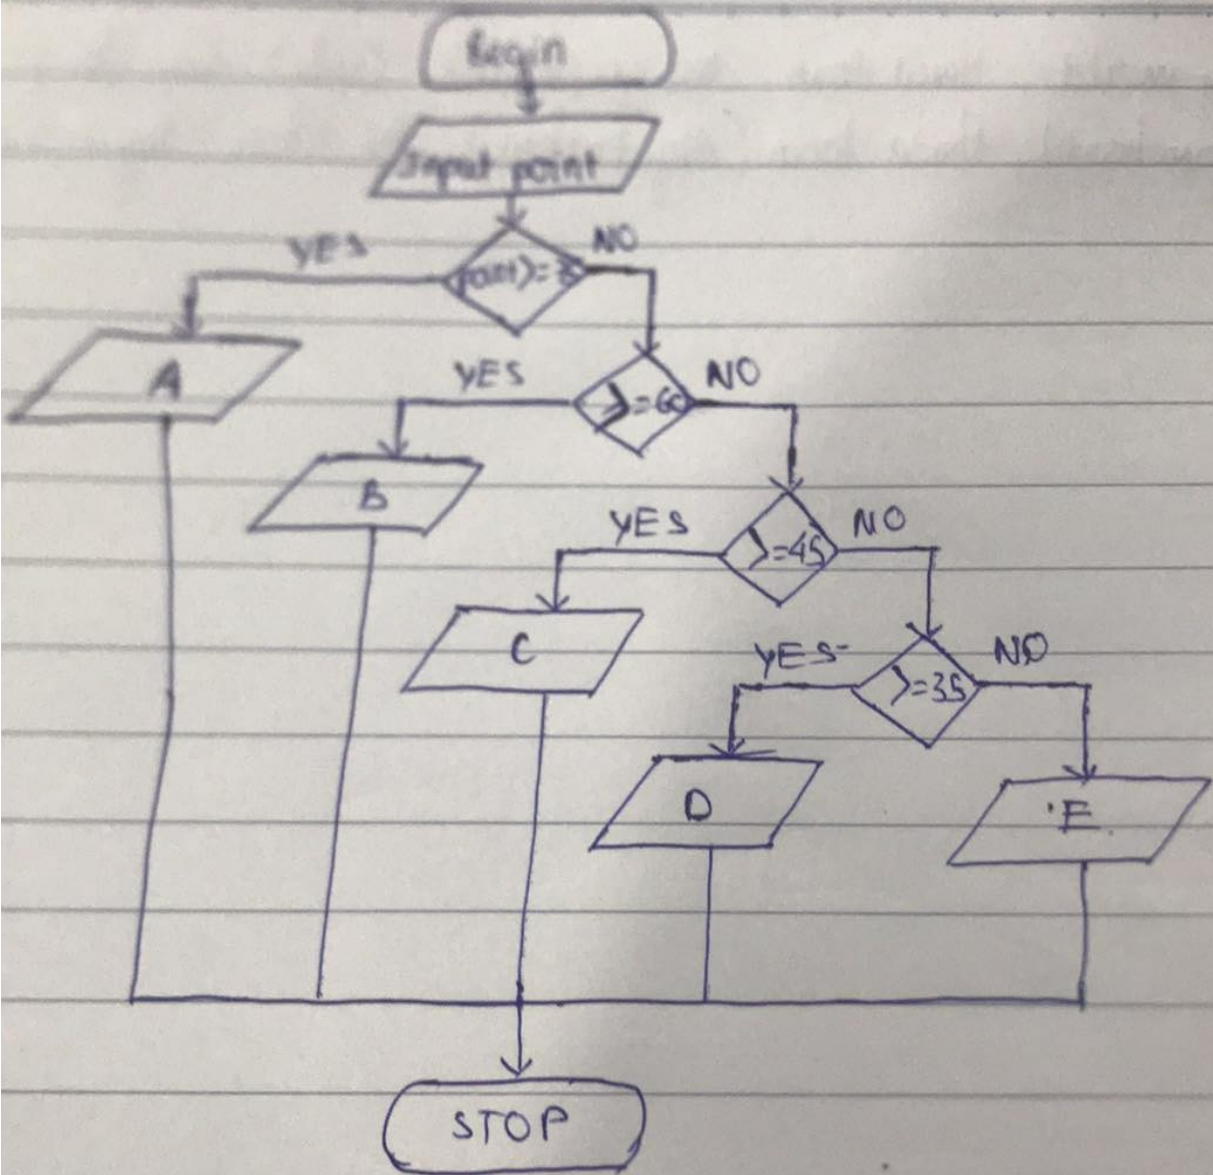 Begin
Input point
YES
NO
A
YES
>=60
NO
B
YES
>=45
NO
C
YES
>=35
NO
D
E
STOP